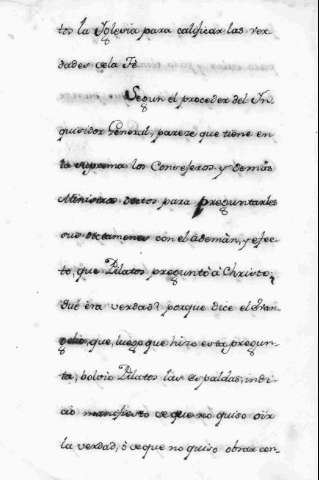 tos la Iglesia para calificar las ver-
dades de la Fè
Segun el proceder del In-
quisidor General, pareze que tiene en
la suprema los Consejeros, y demàs
Ministros doctos para preguntarles
sus dictamenes con el ademàn, y efec-
to, que Pilatos preguntò à Christo,
què era verdad? porque dice el Evan-
gelio, que, luego que hizo esta pregun-
ta, bolviò Pilatos las espaldas, indi-
cio manifiesto de que no quiso oir
la verdad, ò de que no quiso obrar con-